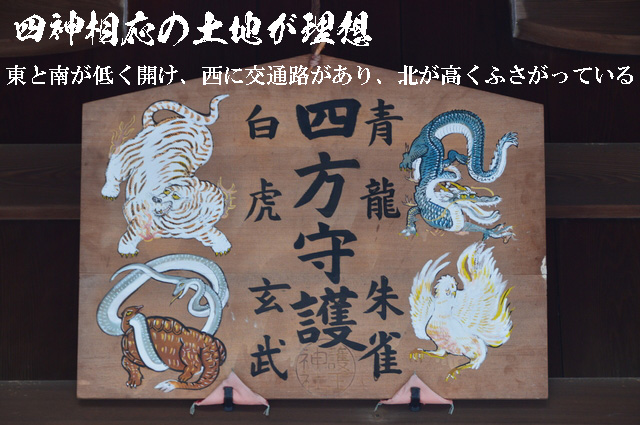 四神相応の土地が理想
東と南が低く開け、西に交通路があり、北が高くふさがっている
四方守護
青龍
朱雀
白虎
玄武